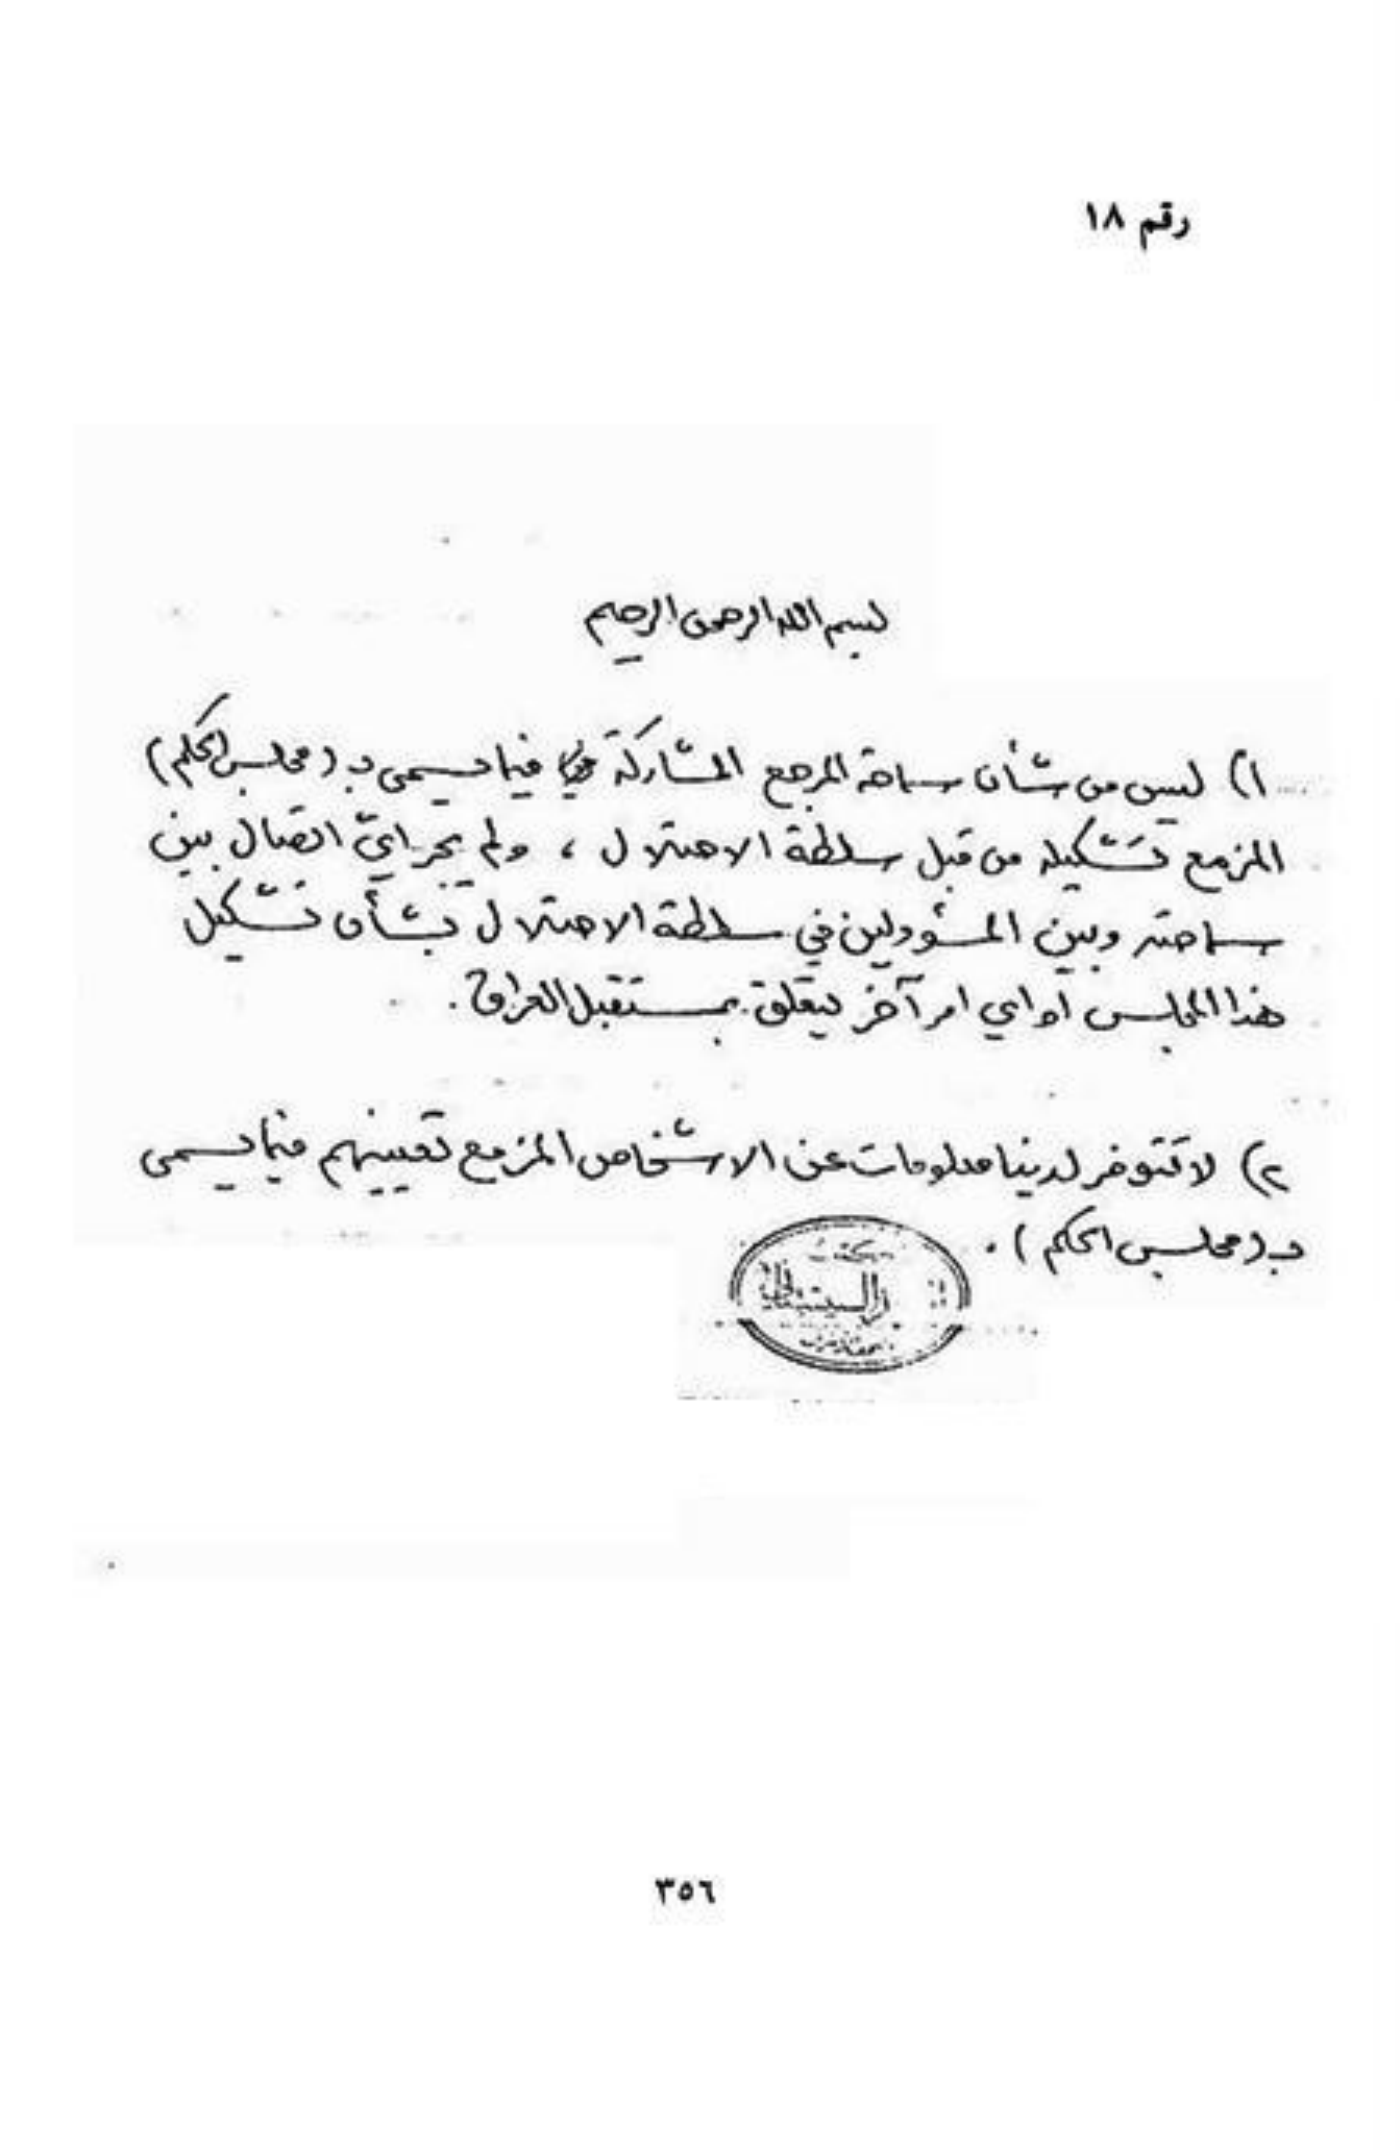 رقم ١٨
بسم الله الرحمن الرحيم
١) ليس من شأن سماحة المرجع المشاركة فيما يسمى بـ (مجلس الحكم)
المزمع تشكيله من قبل سلطة الاحتلال ، ولم يجر ايّ اتصال بين
سماحته وبين المسؤولين في سلطة الاحتلال بشأن تشكيل
هذا المجلس او اي امر آخر يتعلق بمستقبل العراق .
٢) لا تتوفر لدينا معلومات عن الاشخاص المزمع تعيينهم فيما يسمى
بـ (مجلس الحكم) .
مكتب
السيستاني
٣٥٦